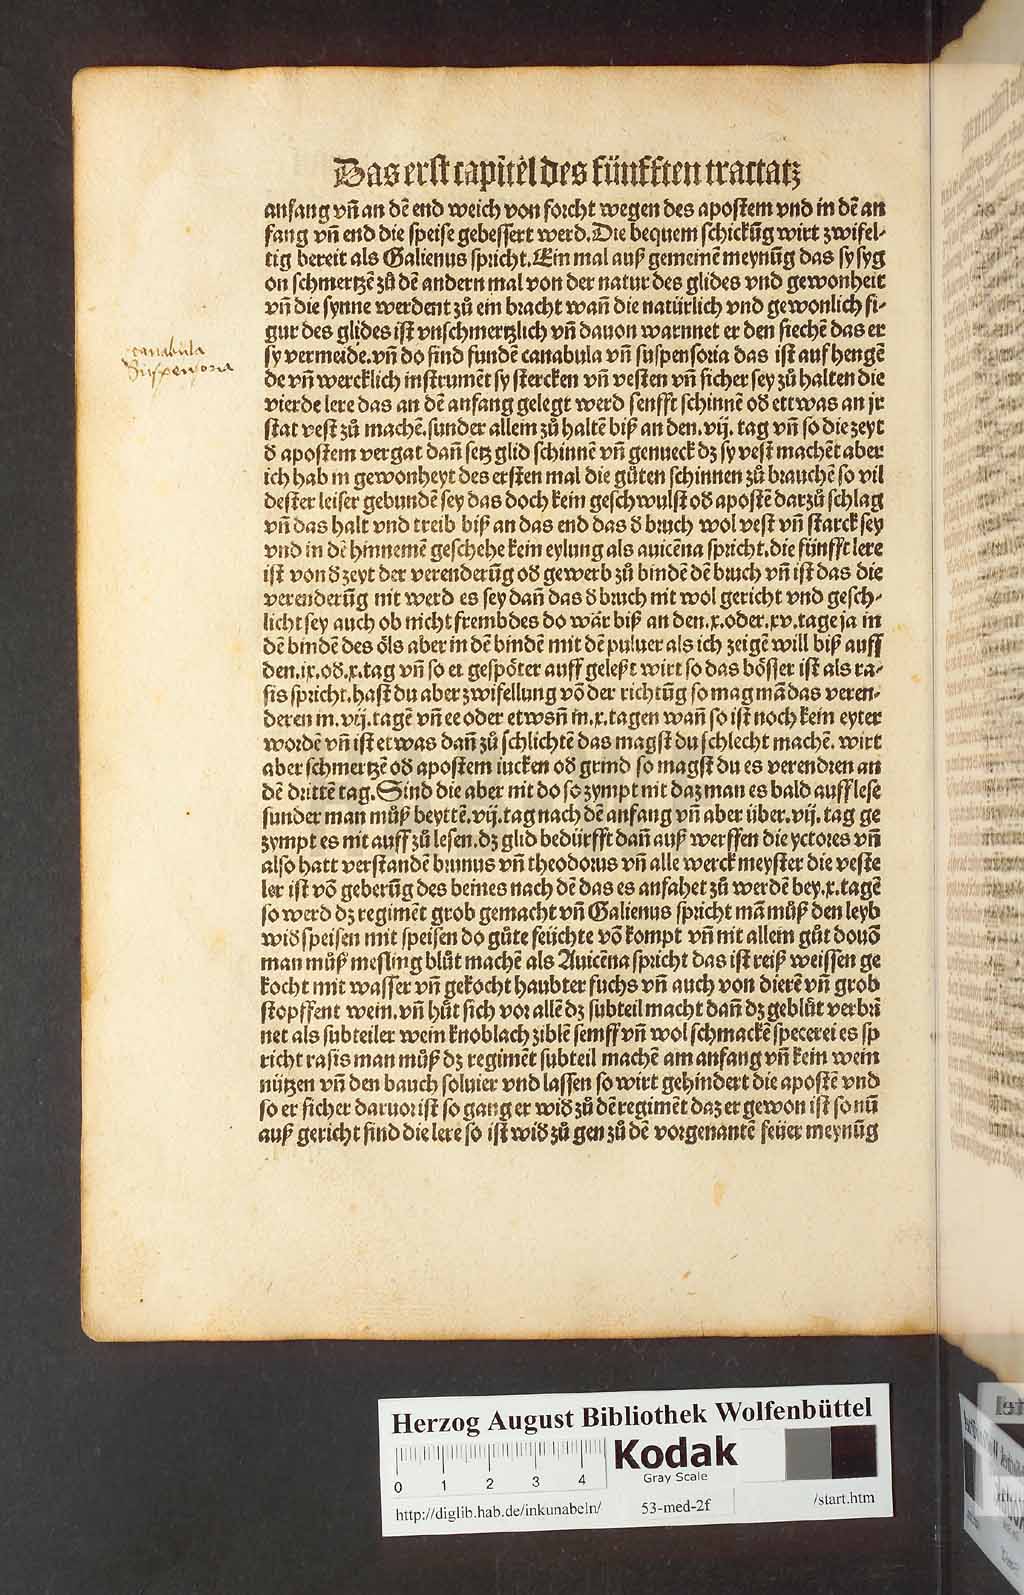 Das erst capitel des fünfften tractatz
anfang vñ an dẽ end weich von forcht wegen des apostem vnd in dẽ an
fang vñ end die speise gebessert werd. Die bequem schickũg wirt zwifel-
tig bereit als Galienus spricht. Ein mal auß gemeinẽ meynũg das sy syg
on schmertzẽ zů dẽ andern mal von der natur des glides vnd gewonheit
vñ die synne werdent zů ein bracht wañ die natürlich vnd gewonlich fi-
gur des glides ist vnschmertzlich vñ dauon warnnet er den siechẽ das er
sy vermeide. vñ do sind fundẽ canabula vñ suspensoria das ist auf hengẽ
canabula
Suspensoria
de vñ wercklich instrumẽt sy stercken vñ vesten vñ sicher sey zů halten die
vierde lere das an dẽ anfang gelegt werd senfft schinnẽ oď ettwas an jr
stat vest zů machẽ. sunder allem zů haltẽ biß an den .vij. tag vñ so die zeyt
ď apostem vergat dañ setz glid schinnẽ vñ genueck dz sy vest machẽt aber
ich hab in gewonheyt des ersten mal die gůten schinnen zů brauchẽ so vil
dester leiser gebundẽ sey das doch kein geschwulst oď apostẽ darzů schlag
vñ das halt vnd treib biß an das end das ď bruch wol vest vñ starck sey
vnd in dẽ hinnemẽ geschehe kein eylung als auicẽna spricht. die fünfft lere
ist von ď zeyt der verenderũg oď gewerb zů bindẽ dẽ bruch vñ ist das die
verenderũg nit werd es sey dañ das ď bruch nit wol gericht vnd gesch-
licht sey auch ob nicht frembdes do wär biß an den .x. oder .xv. tage ja in
dẽ bindẽ des öls aber in dẽ bindẽ mit dẽ puluer als ich zeigẽ will biß auff
den .ix. oď .x. tag vñ so er gespöter auff geleßt wirt so das bösser ist als ra-
sis spricht. hast du aber zwifellung võ der richtũg so mag mã das veren-
deren in .vij. tagẽ vñ ee oder etwsñ in .x. tagen wañ so ist noch kein eyter
wordẽ vñ ist etwas dañ zů schlichtẽ das magst du schlecht machẽ. wirt
aber schmertzẽ oď apostem iucken oď grind so magst du es verendren an
dẽ drittẽ tag. Sind die aber nit do so zympt nit daz man es bald aufflese
sunder man můß beyttẽ .vij. tag nach dẽ anfang vñ aber über .vij. tag ge
zympt es nit auff zů lesen. dz glid bedürfft dañ auß werffen die yctores vñ
also hatt verstandẽ brunus vñ theodorus vñ alle werck meyster die veste
ler ist võ geberũg des beines nach dẽ das es anfahet zů werdẽ bey .x. tagẽ
so werd dz regimẽt grob gemacht vñ Galienus spricht mã můß den leyb
wiď speisen mit speisen do gůte feüchte võ kompt vñ nit allein gůt douõ
man můß mesling blůt machẽ als Auicẽna spricht das ist reiß weissen ge
kocht mit wasser vñ gekocht haubter fuchs vñ auch von dierẽ vñ grob
stopffent wein. vñ hůt sich vor allẽ dz subteil macht dañ dz geblůt verbrī
net als subteiler wein knoblach ziblẽ semff vñ wol schmackẽ specerei es sp
richt rasis man můß dz regimẽt subteil machẽ am anfang vñ kein wein
nützen vñ den bauch soluier vnd lassen so wirt gehindert die apostẽ vnd
so er sicher daruor ist so gang er wiď zů dẽ regimẽt daz er gewon ist so nũ
auß gericht sind die lere so ist wiď zů gen zů dẽ vorgenantẽ feüer meynũg
Herzog August Bibliothek Wolfenbüttel
Kodak
Gray Scale
0 1 2 3 4
http://diglib.hab.de/inkunabeln/ 53-med-2f /start.htm